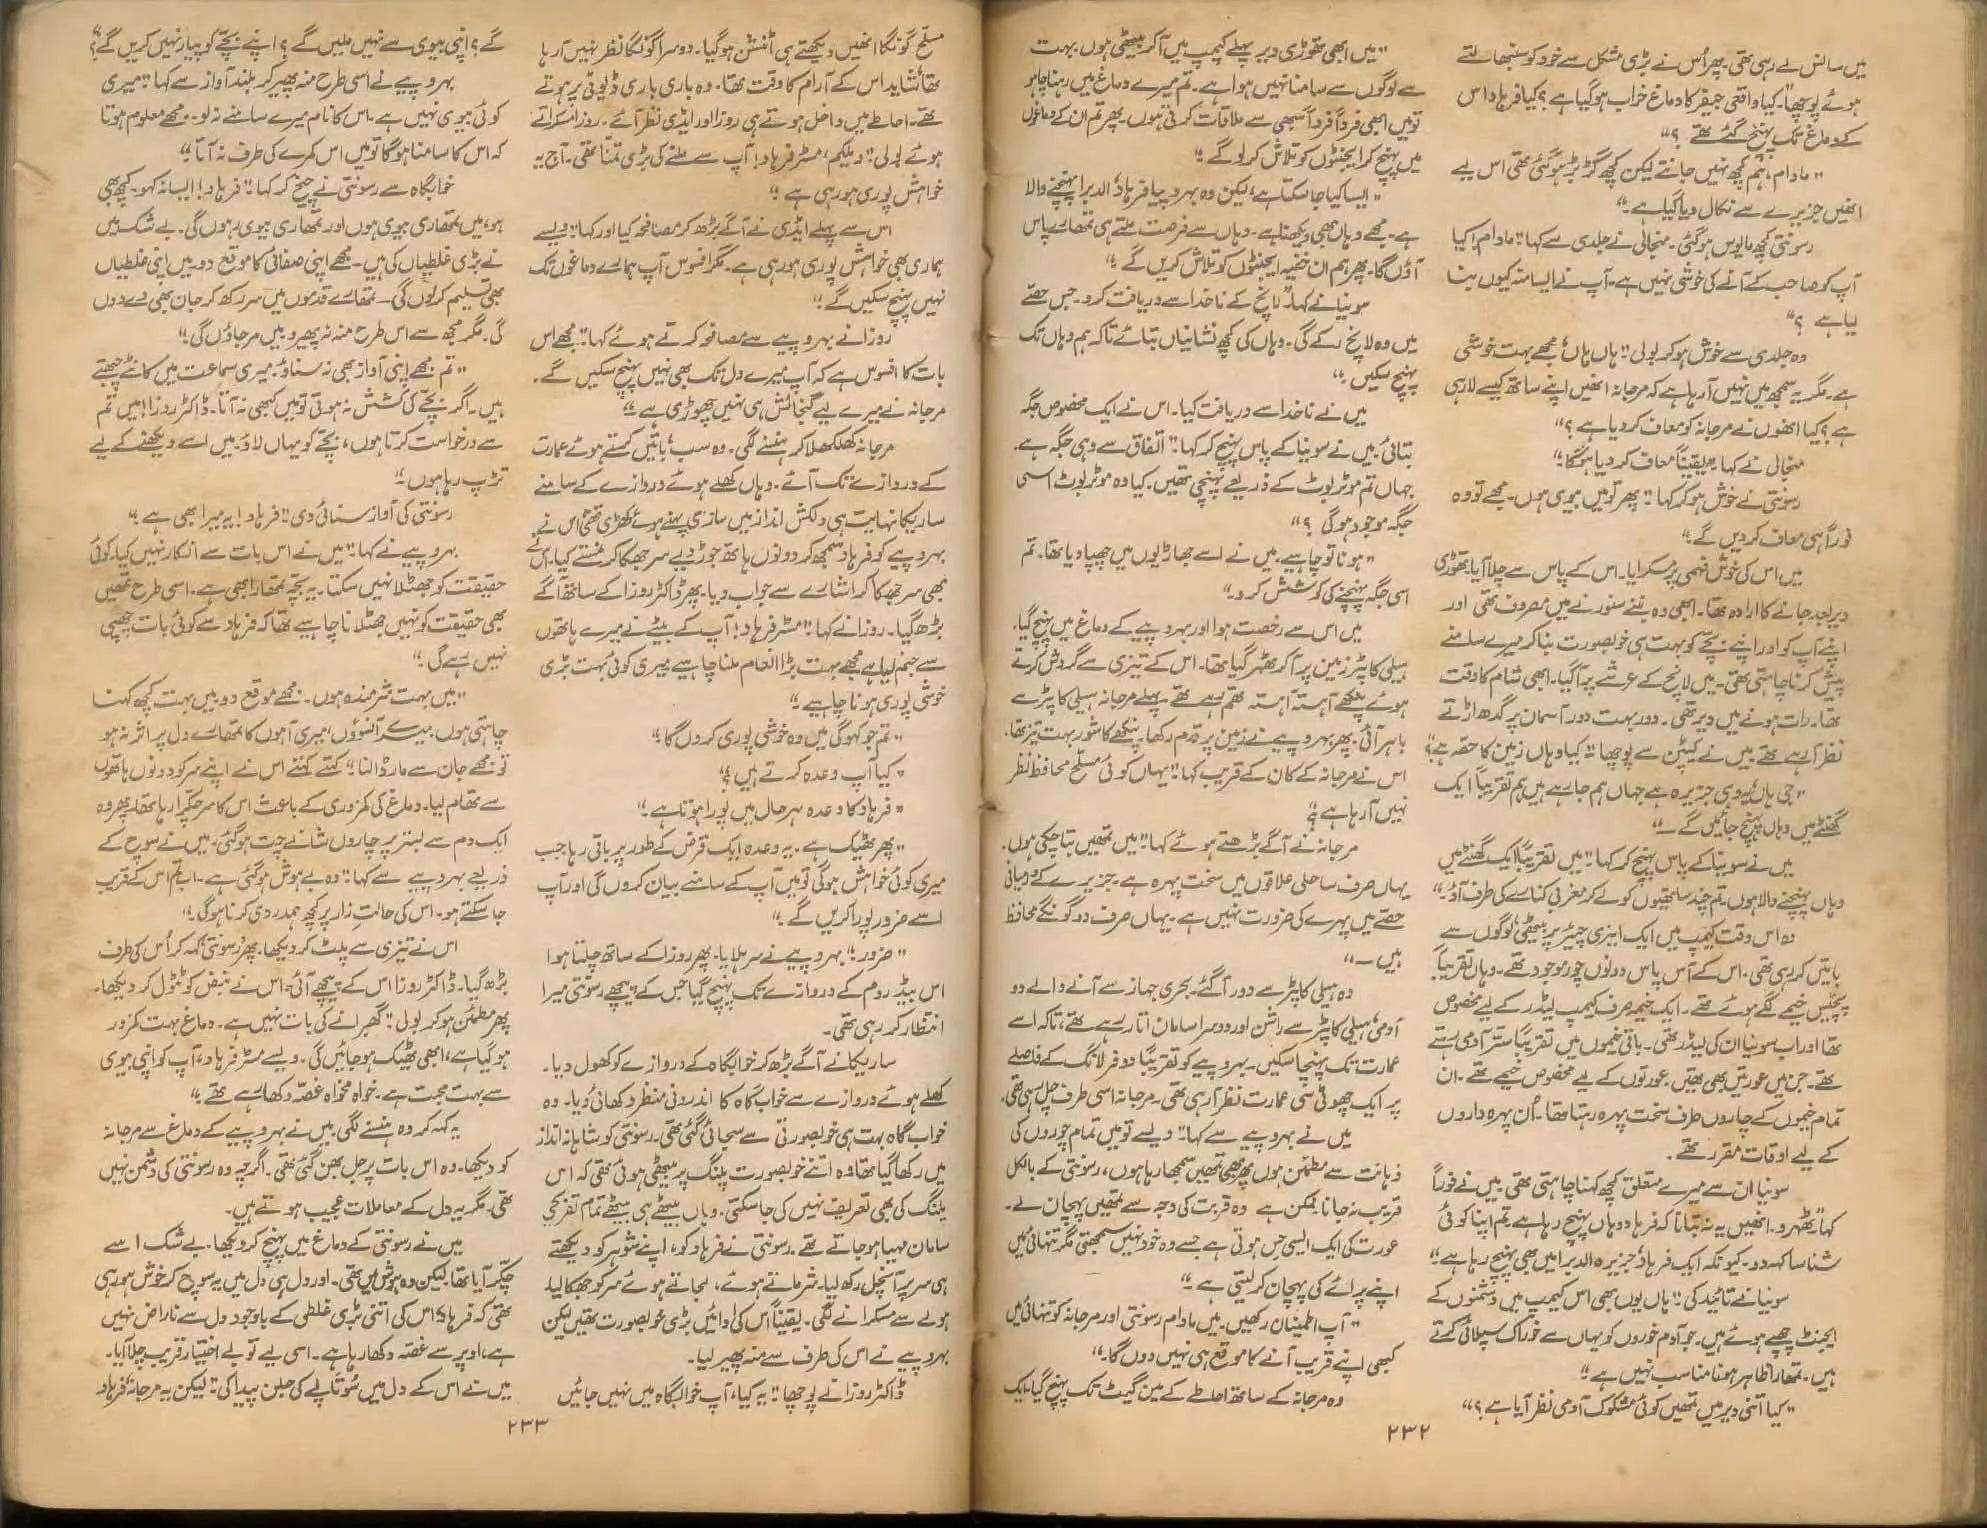 میں سانس لے رہی تھی۔ پھر اُس نے بڑی مشکل سے خود کو سنبھالتے
ہوئے پوچھا "کیا واقعی جیفر کا دماغ خراب ہو گیا ہے؟ کیا فرہاد اس
کے دماغ تک پہنچ گئے تھے؟"
"مادام، ہم کچھ نہیں جانتے لیکن کچھ گڑبڑ ہو گئی تھی اس لیے
انھیں جزیرے سے نکال دیا گیا ہے۔"
رسونتی کچھ مایوس ہو گئی۔ منجالی نے جلدی سے کہا "مادام! کیا
آپ کو صاحب کے آنے کی خوشی نہیں ہے۔ آپ نے ایسا منہ کیوں بنا
لیا ہے؟"
وہ جلدی سے خوش ہو کر بولی "ہاں ہاں، مجھے بہت خوشی
ہے۔ مگر یہ سمجھ میں نہیں آ رہا ہے کہ مرجانہ انھیں اپنے ساتھ کیسے لا رہی
ہے؟ کیا انھوں نے مرجانہ کو معاف کر دیا ہے؟"
منجالی نے کہا "یقیناً معاف کر دیا ہو گا۔"
رسونتی نے خوش ہو کر کہا "پھر تو میں بیوی ہوں۔ مجھے تو وہ
فوراً ہی معاف کر دیں گے۔"
میں اس کی خوش فہمی پر مسکرایا۔ اس کے پاس سے چلا آیا۔ تھوڑی
دیر بعد جانے کا ارادہ تھا۔ ابھی وہ بننے سنورنے میں مصروف تھی اور
اپنے آپ کو اور اپنے بچے کو بہت ہی خوبصورت بنا کر میرے سامنے
پیش کرنا چاہتی تھی۔ میں لانچ کے عرشے پر آ گیا۔ ابھی شام کا وقت
تھا۔ رات ہونے میں دیر تھی۔ دور بہت دور آسمان پر گدھ اڑتے
نظر آ رہے تھے۔ میں نے کیپٹن سے پوچھا "کیا وہاں زمین کا حصہ ہے؟"
"جی ہاں، یہ وہی جزیرہ ہے جہاں ہم جا رہے ہیں ہم تقریباً ایک
گھنٹے میں وہاں پہنچ جائیں گے۔"
میں نے سونیا کے پاس پہنچ کر کہا "میں تقریباً ایک گھنٹے میں
وہاں پہنچنے والا ہوں۔ تم چند ساتھیوں کو لے کر مغربی کنارے کی طرف آؤ۔"
وہ اس وقت کیمپ میں ایک ایزی چیئر پر بیٹھی لوگوں سے
باتیں کر رہی تھی۔ اس کے آس پاس دونوں چور موجود تھے۔ وہاں تقریباً
پچیس خیمے لگے ہوئے تھے۔ ایک خیمہ صرف کیمپ لیڈر کے لیے مخصوص
تھا اور اب سونیا ان کی لیڈر تھی۔ باقی خیموں میں تقریباً ستر آدمی رہتے
تھے۔ جن میں عورتیں بھی تھیں۔ عورتوں کے لیے مخصوص خیمے تھے۔ ان
تمام خیموں کے چاروں طرف سخت پہرہ رہتا تھا۔ اُن پہرہ داروں
کے لیے اوقات مقرر تھے۔
سونیا ان سے میرے متعلق کچھ کہنا چاہتی تھی۔ میں نے فوراً
کہا "ٹھہرو۔ انھیں یہ نہ بتانا کہ فرہاد وہاں پہنچ رہا ہے۔ تم اپنا کوئی
شناسا کہہ دو۔ کیونکہ ایک فرہاد، جزیرہ الدبرا میں بھی پہنچ رہا ہے۔"
سونیا نے تائید کی "ہاں یوں بھی اس کیمپ میں دشمنوں کے
ایجنٹ چھپے ہوئے ہیں۔ جو آدم خوروں کو یہاں سے خوراک سپلائی کرتے
ہیں۔ تمھارا ظاہر ہونا مناسب نہیں ہے۔"
"کیا اتنی دیر میں تمھیں کوئی مشکوک آدمی نظر آیا ہے؟"
"میں ابھی تھوڑی دیر پہلے کیمپ میں آ کر بیٹھی ہوں۔ بہت
سے لوگوں سے سامنا نہیں ہوا ہے۔ تم میرے دماغ میں رہنا چاہو
تو میں ابھی فرداً فرداً سبھی سے ملاقات کرتی ہوں۔ پھر تم ان کے دماغوں
میں پہنچ کر ایجنٹوں کو تلاش کر لو گے۔"
"ایسا کیا جا سکتا ہے، لیکن وہ بہروپیا فرہاد، الدبرا پہنچنے والا
ہے۔ مجھے وہاں بھی دیکھنا ہے۔ وہاں سے فرصت ملتے ہی تمھارے پاس
آؤں گا۔ پھر ہم ان خفیہ ایجنٹوں کو تلاش کریں گے۔"
سونیا نے کہا "لانچ کے ناخدا سے دریافت کرو۔ جس حصے
میں وہ لانچ رکے گی۔ وہاں کی کچھ نشانیاں بتائے تاکہ ہم وہاں تک
پہنچ سکیں۔"
میں نے ناخدا سے دریافت کیا۔ اس نے ایک مخصوص جگہ
بتائی۔ میں نے سونیا کے پاس پہنچ کر کہا "اتفاق سے وہی جگہ ہے۔
جہاں تم موٹر بوٹ کے ذریعے پہنچی تھیں۔ کیا وہ موٹر بوٹ اسی
جگہ موجود ہو گی؟"
"ہونا تو چاہیے۔ میں نے اسے جھاڑیوں میں چھپا دیا تھا۔ تم
اسی جگہ پہنچنے کی کوشش کرو۔"
میں اس سے رخصت ہوا اور بہروپیے کے دماغ میں پہنچ گیا۔
ہیلی کاپٹر زمین پر آ کر ٹھہر گیا تھا۔ اس کے تیزی سے گردش کرتے
ہوئے پنکھے آہستہ آہستہ تھم رہے تھے۔ پہلے مرجانہ ہیلی کاپٹر سے
باہر آئی۔ پھر بہروپیے نے زمین پر قدم رکھا۔ پنکھے کا شور بہت تیز تھا۔
اس نے مرجانہ کے کان کے قریب کہا "یہاں کوئی مسلح محافظ نظر
نہیں آ رہا ہے؟"
مرجانہ نے آگے بڑھتے ہوئے کہا "میں تمھیں بتا چکی ہوں۔
یہاں صرف ساحلی علاقوں میں سخت پہرہ ہے۔ جزیرے کے درمیانی
حصے میں پہرے کی ضرورت نہیں ہے۔ یہاں صرف دو گونگے محافظ
ہیں۔"
وہ ہیلی کاپٹر سے دور آ گئے۔ بحری جہاز سے آنے والے دو
آدمی، ہیلی کاپٹر سے راشن اور دوسرا سامان اتار رہے تھے، تاکہ اسے
عمارت تک پہنچا سکیں۔ بہروپیے کو تقریباً دو فرلانگ کے فاصلے
پر ایک چھوٹی سی عمارت نظر آ رہی تھی۔ مرجانہ اسی طرف چل رہی تھی۔
میں نے بہروپیے سے کہا "ویسے تو میں تمام چوروں کی
ذہانت سے مطمئن ہوں پھر بھی تمھیں سمجھا رہا ہوں، رسونتی کے بالکل
قریب نہ جانا۔ ممکن ہے وہ قربت کی وجہ سے تمھیں پہچان لے۔
عورت کی ایک ایسی حس ہوتی ہے جسے وہ خود نہیں سمجھتی مگر تنہائی میں
اپنے پرائے کی پہچان کر لیتی ہے۔"
"آپ اطمینان رکھیں۔ میں مادام رسونتی اور مرجانہ کو تنہائی میں
کبھی اپنے قریب آنے کا موقع ہی نہیں دوں گا۔"
وہ مرجانہ کے ساتھ احاطے کے مین گیٹ تک پہنچ گیا۔ ایک
۲۳۲
مسلح گونگا انھیں دیکھتے ہی اٹنشن ہو گیا۔ دوسرا گونگا نظر نہیں آ رہا
تھا۔ شاید اس کے آرام کا وقت تھا۔ وہ باری باری ڈیوٹی پر ہوتے
تھے۔ احاطے میں داخل ہوتے ہی روزا اور ایڈی نظر آئے۔ روزا مسکراتے
ہوئے بولی "ویلکم، مسٹر فرہاد! آپ سے ملنے کی بڑی تمنا تھی۔ آج یہ
خواہش پوری ہو رہی ہے۔"
اس سے پہلے ایڈی نے آگے بڑھ کر مصافحہ کیا اور کہا "ویسے
ہماری بھی خواہش پوری ہو رہی ہے۔ مگر افسوس آپ ہمارے دماغوں تک
نہیں پہنچ سکیں گے۔"
روزا نے بہروپیے سے مصافحہ کرتے ہوئے کہا "مجھے اس
بات کا افسوس ہے کہ آپ میرے دل تک بھی نہیں پہنچ سکیں گے۔
مرجانہ نے میرے لیے گنجائش ہی نہیں چھوڑی ہے۔"
مرجانہ کھلکھلا کر ہنسنے لگی۔ وہ سب باتیں کرتے ہوئے عمارت
کے دروازے تک آئے۔ وہاں کھلے ہوئے دروازے کے سامنے
ساریکا نہایت ہی دلکش انداز میں ساڑی پہنے ہوئے کھڑی تھی اس نے
بہروپیے کو فرہاد سمجھ کر دونوں ہاتھ جوڑ دیے سر جھکا کر نمستے کیا۔ اس نے
بھی سر جھکا کر اشارے سے جواب دیا۔ پھر ڈاکٹر روزا کے ساتھ آگے
بڑھ گیا۔ روزا نے کہا "مسٹر فرہاد! آپ کے بیٹے نے میرے ہاتھوں
سے جنم لیا ہے مجھے بہت بڑا انعام ملنا چاہیے میری کوئی بہت بڑی
خوشی پوری ہونا چاہیے۔"
"تم جو کہو گی میں وہ خوشی پوری کر دوں گا۔"
"کیا آپ وعدہ کرتے ہیں؟"
"فرہاد کا وعدہ ہر حال میں پورا ہوتا ہے۔"
"پھر ٹھیک ہے۔ یہ وعدہ ایک قرض کے طور پر باقی رہا جب
میری کوئی خواہش ہو گی تو میں آپ کے سامنے بیان کروں گی اور آپ
اسے ضرور پورا کریں گے۔"
"ضرور۔" بہروپیے نے سر ہلایا۔ پھر روزا کے ساتھ چلتا ہوا
اس بیڈ روم کے دروازے تک پہنچ گیا جس کے پیچھے رسونتی میرا
انتظار کر رہی تھی۔
ساریکا نے آگے بڑھ کر خوابگاہ کے دروازے کو کھول دیا۔
کھلے ہوئے دروازے سے خواب گاہ کا اندرونی منظر دکھائی دیا۔ وہ
خواب گاہ بہت ہی خوبصورتی سے سجائی گئی تھی۔ رسونتی کو شاہانہ انداز
میں رکھا گیا تھا۔ وہ اتنے خوبصورت پلنگ پر بیٹھی ہوئی تھی کہ اس
پلنگ کی بھی تعریف نہیں کی جا سکتی۔ وہاں بیٹھے ہی بیٹھے تمام تفریحی
سامان مہیا ہو جاتے تھے۔ رسونتی نے فرہاد کو، اپنے شوہر کو دیکھتے
ہی سر پر آنچل رکھ لیا۔ شرماتے ہوئے، لجاتے ہوئے سر کو جھکا لیا۔
ہولے سے مسکرانے لگی۔ یقیناً اُس کی ادائیں بڑی خوبصورت تھیں لیکن
بہروپیے نے اس کی طرف سے منہ پھیر لیا۔
ڈاکٹر روزا نے پوچھا "یہ کیا، آپ خوابگاہ میں نہیں جائیں
گے؟ اپنی بیوی سے نہیں ملیں گے؟ اپنے بچے کو پیار نہیں کریں گے؟"
بہروپیے نے اسی طرح منہ پھیر کر بلند آواز سے کہا "میری
کوئی بیوی نہیں ہے۔ اس کا نام میرے سامنے نہ لو۔ مجھے معلوم ہوتا
کہ اس کا سامنا ہو گا تو میں اس کمرے کی طرف نہ آتا۔"
خوابگاہ سے رسونتی نے چیخ کر کہا "فرہاد! ایسا نہ کہو۔ کچھ بھی
ہو، میں تمھاری بیوی ہوں اور تمھاری بیوی رہوں گی۔ بے شک میں
نے بڑی غلطیاں کی ہیں۔ مجھے اپنی صفائی کا موقع دو۔ میں اپنی غلطیاں
بھی تسلیم کر لوں گی۔ تمھارے قدموں میں سر رکھ کر جان بھی دے دوں
گی۔ مگر مجھ سے اس طرح منہ نہ پھیرو۔ میں مر جاؤں گی۔"
"تم مجھے اپنی آواز بھی نہ سناؤ۔ میری سماعت میں کانٹے چبھتے
ہیں۔ اگر بچے کی کشش نہ ہوتی تو میں کبھی نہ آتا۔ ڈاکٹر روزا! میں تم
سے درخواست کرتا ہوں، بچے کو یہاں لاؤ۔ میں اسے دیکھنے کے لیے
تڑپ رہا ہوں۔"
رسونتی کی آواز سنائی دی "فرہاد! یہ میرا بھی ہے۔"
بہروپیے نے کہا "میں نے اس بات سے انکار نہیں کیا۔ کوئی
حقیقت کو جھٹلا نہیں سکتا۔ یہ بچہ تمھارا بھی ہے۔ اسی طرح تمھیں
بھی حقیقت کو نہیں جھٹلانا چاہیے تھا کہ فرہاد سے کوئی بات چھپی
نہیں رہے گی۔"
"میں بہت شرمندہ ہوں۔ مجھے موقع دو میں بہت کچھ کہنا
چاہتی ہوں۔ میرے آنسوؤں، میری آہوں کا تمھارے دل پر اثر نہ ہو
تو مجھے جان سے مار ڈالنا۔" کہتے کہتے اس نے اپنے سر کو دونوں ہاتھوں
سے تھام لیا۔ دماغ کی کمزوری کے باعث اس کا سر چکرا رہا تھا۔ پھر وہ
ایک دم سے بستر پر چاروں شانے چت ہو گئی۔ میں نے سوچ کے
ذریعے بہروپیے سے کہا "وہ بے ہوش ہو گئی ہے۔ اب تم اس کے قریب
جا سکتے ہو۔ اس کی حالتِ زار پر کچھ ہمدردی کرنا ہو گی۔"
اس نے تیزی سے پلٹ کر دیکھا۔ پھر رسونتی کہہ کر اُس کی طرف
بڑھ گیا۔ ڈاکٹر روزا اس کے پیچھے آئی۔ اس نے نبض کو ٹٹول کر دیکھا۔
پھر مطمئن ہو کر بولی "گھبرانے کی بات نہیں ہے۔ دماغ بہت کمزور
ہو گیا ہے، ابھی ٹھیک ہو جائیں گی۔ ویسے مسٹر فرہاد، آپ کو اپنی بیوی
سے بہت محبت ہے۔ خواہ مخواہ غصہ دکھا رہے تھے۔"
یہ کہہ کر وہ ہنسنے لگی۔ میں نے بہروپیے کے دماغ سے مرجانہ
کو دیکھا۔ وہ اس بات پر جل بھن گئی تھی۔ اگرچہ وہ رسونتی کی دشمن نہیں
تھی۔ مگر یہ دل کے معاملات عجیب ہوتے ہیں۔
میں نے رسونتی کے دماغ میں پہنچ کر دیکھا۔ بے شک اسے
چکر آیا تھا۔ لیکن وہ ہوش میں تھی۔ اور دل ہی دل میں یہ سوچ کر خوش ہو رہی
تھی کہ فرہاد اس کی اتنی بڑی غلطی کے باوجود دل سے ناراض نہیں
ہے، اوپر سے غصہ دکھا رہا ہے۔ اسی لیے تو بے اختیار قریب چلا آیا۔
میں نے اس کے دل میں سوتاپے کی جلن پیدا کی "لیکن یہ مرجانہ، فرہاد
۲۳۳